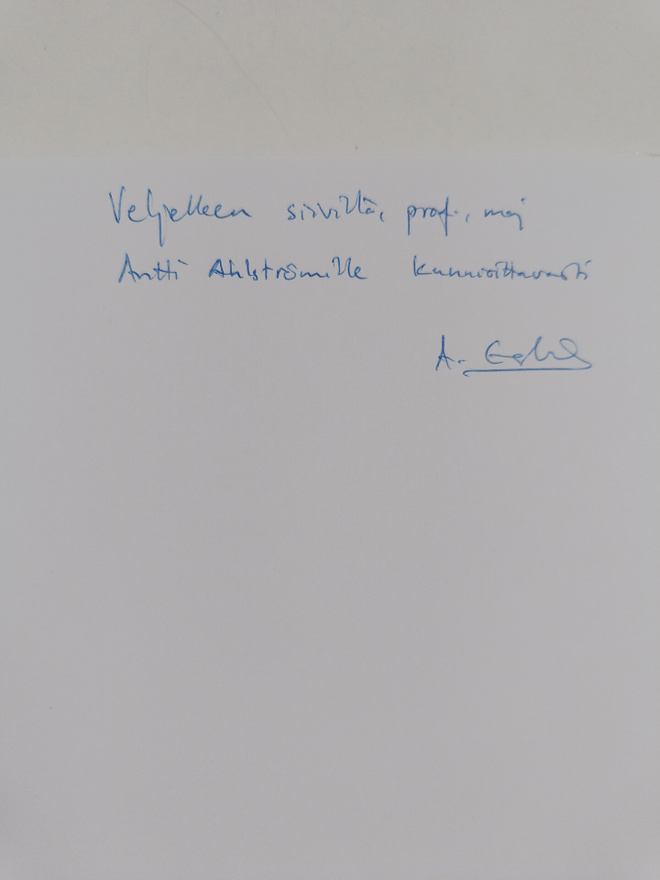 Veljelleen siiviltä, prof., maj
Antti Ahlströmille kunnioittavasti
A.